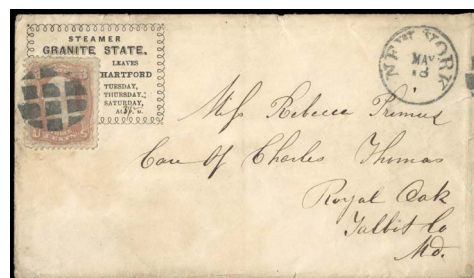 STEAMER
GRANITE STATE,
LEAVES
HARTFORD
TUESDAY,
THURSDAY,
SATURDAY,
NEW YORK
MAY
Miss Rebecca Primus
Care Of Charles Thomas
Royal Oak
Talbot Co
Md.